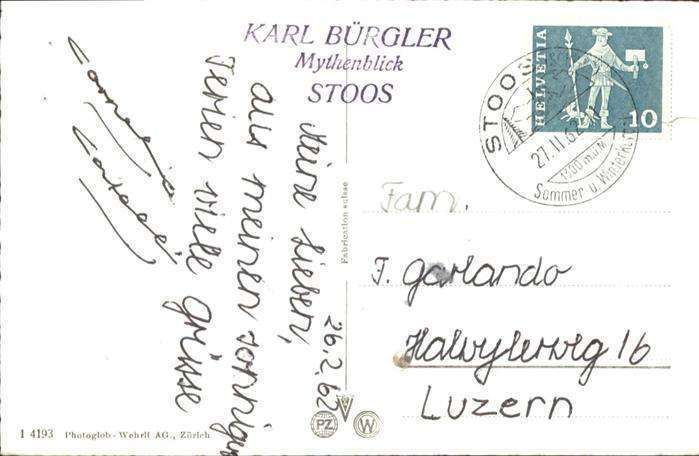 KARL BÜRGLER
Mythenblick
STOOS
HELVETIA
10
STOOS
27.11.62
1300 m.ü.M.
Sommer u. Winterkurort
26.2.62
Meine Lieben,
aus meinen sonnigen
Ferien viele grüsse
Fabrication suisse
Fam.
F. Garlando
Halwylerweg 16
Luzern
1 4193 Photoglob-Wehrli AG., Zürich
PZ
W